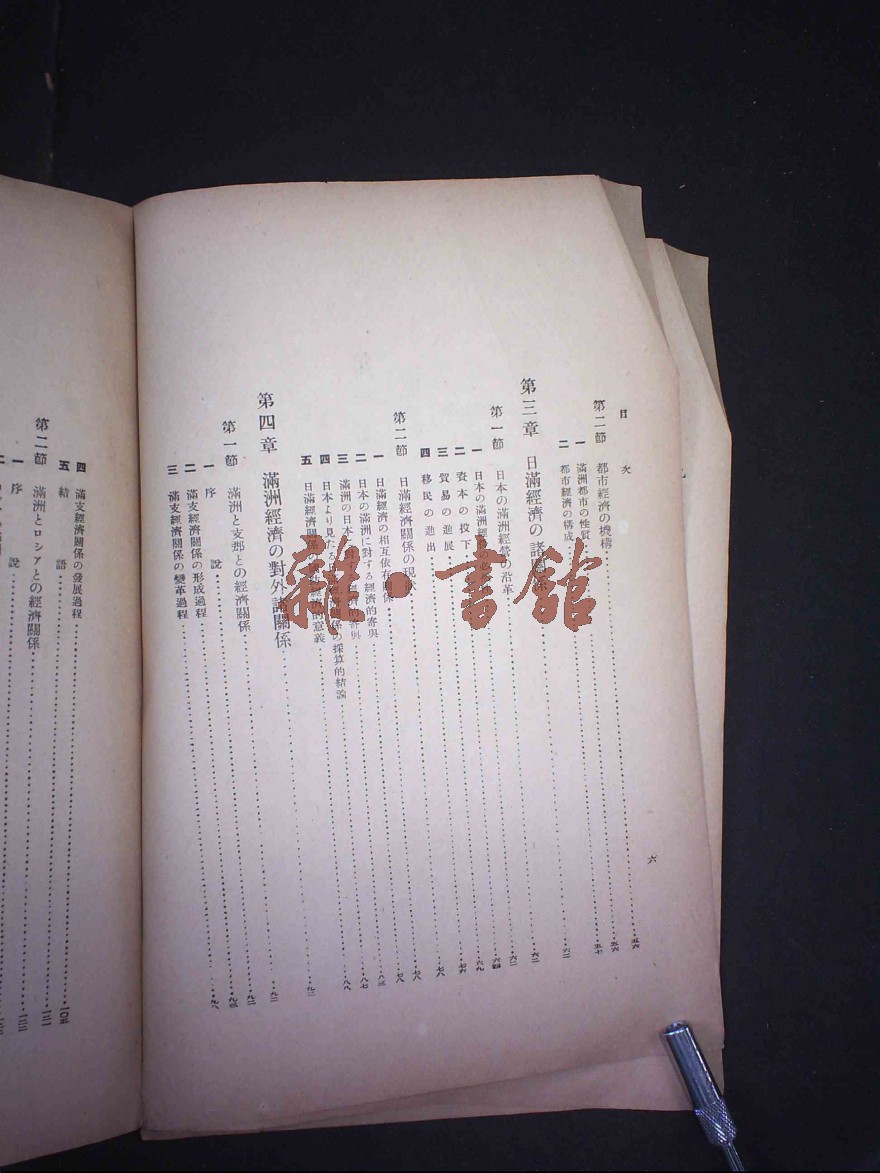 目次
六
第二節 都市經濟の機構……五六
一 滿洲都市の性質……五七
二 都市經濟の構成……六二
第三章 日滿經濟の諸關係……六二
第一節 日本の滿洲經營の沿革……六二
一 日本の滿洲經營の必……六四
二 資本の投下……六九
三 貿易の進展……七六
四 移民の進出……七八
第二節 日滿經濟關係の現……七八
一 日滿經濟の相互依存關係……七八
二 日本の滿洲に對する經濟的寄與……八三
三 滿洲の日本に對する經濟的寄與……八七
四 日本より見たる日滿經濟關係の採算的結論……八八
五 日滿經濟關係の經濟的意義……九二
第四章 滿洲經濟の對外諸關係……九二
第一節 滿洲と支那との經濟關係……九二
一 序說……九二
二 滿支經濟關係の形成過程……九三
三 滿支經濟關係の變革過程……九八
四 滿支經濟關係の發展過程……一〇五
五 結語
第二節 滿洲とロシアとの經濟關係……一二一
一 序說
二
雜·書館